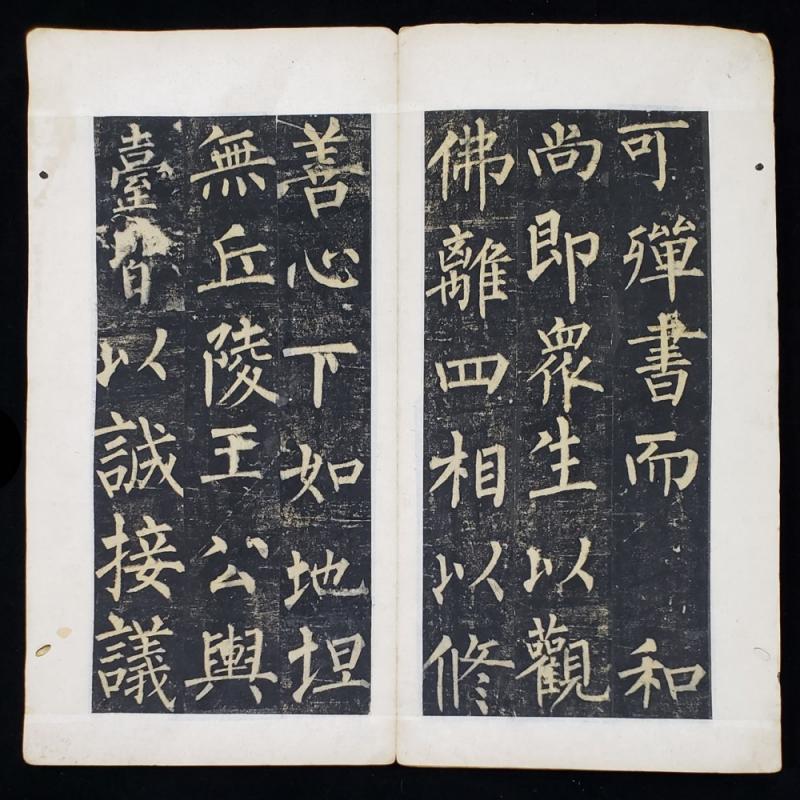 可殫書而 和
尚即衆生以觀
佛離四相以修
善心下如地坦
無丘陵王公輿
臺皆以誠接議